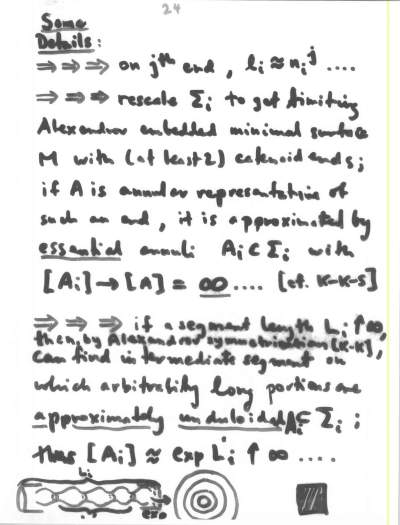 24
Some
Details:
⇒⇒⇒ on jth end, l_i ≈ n_i^j ....
⇒⇒⇒ rescale Σ_i to get limiting
Alexandrov embedded minimal surface
M with (at least 2) catenoid ends;
if A is annular representative of
such an end, it is approximated by
essential annuli A_i ⊂ Σ_i with
[A_i] → [A] = ∞ .... [cf. K-K-S]
⇒⇒⇒ if a segment length L_i ↑ ∞,
then, by Alexandrov symmetrization [K-K],
can find intermediate segment on
which arbitrarily long portions are
approximately unduloidal A_i ⊂ Σ_i ;
thus [A_i] ≈ exp L_i ↑ ∞ ....
L_i